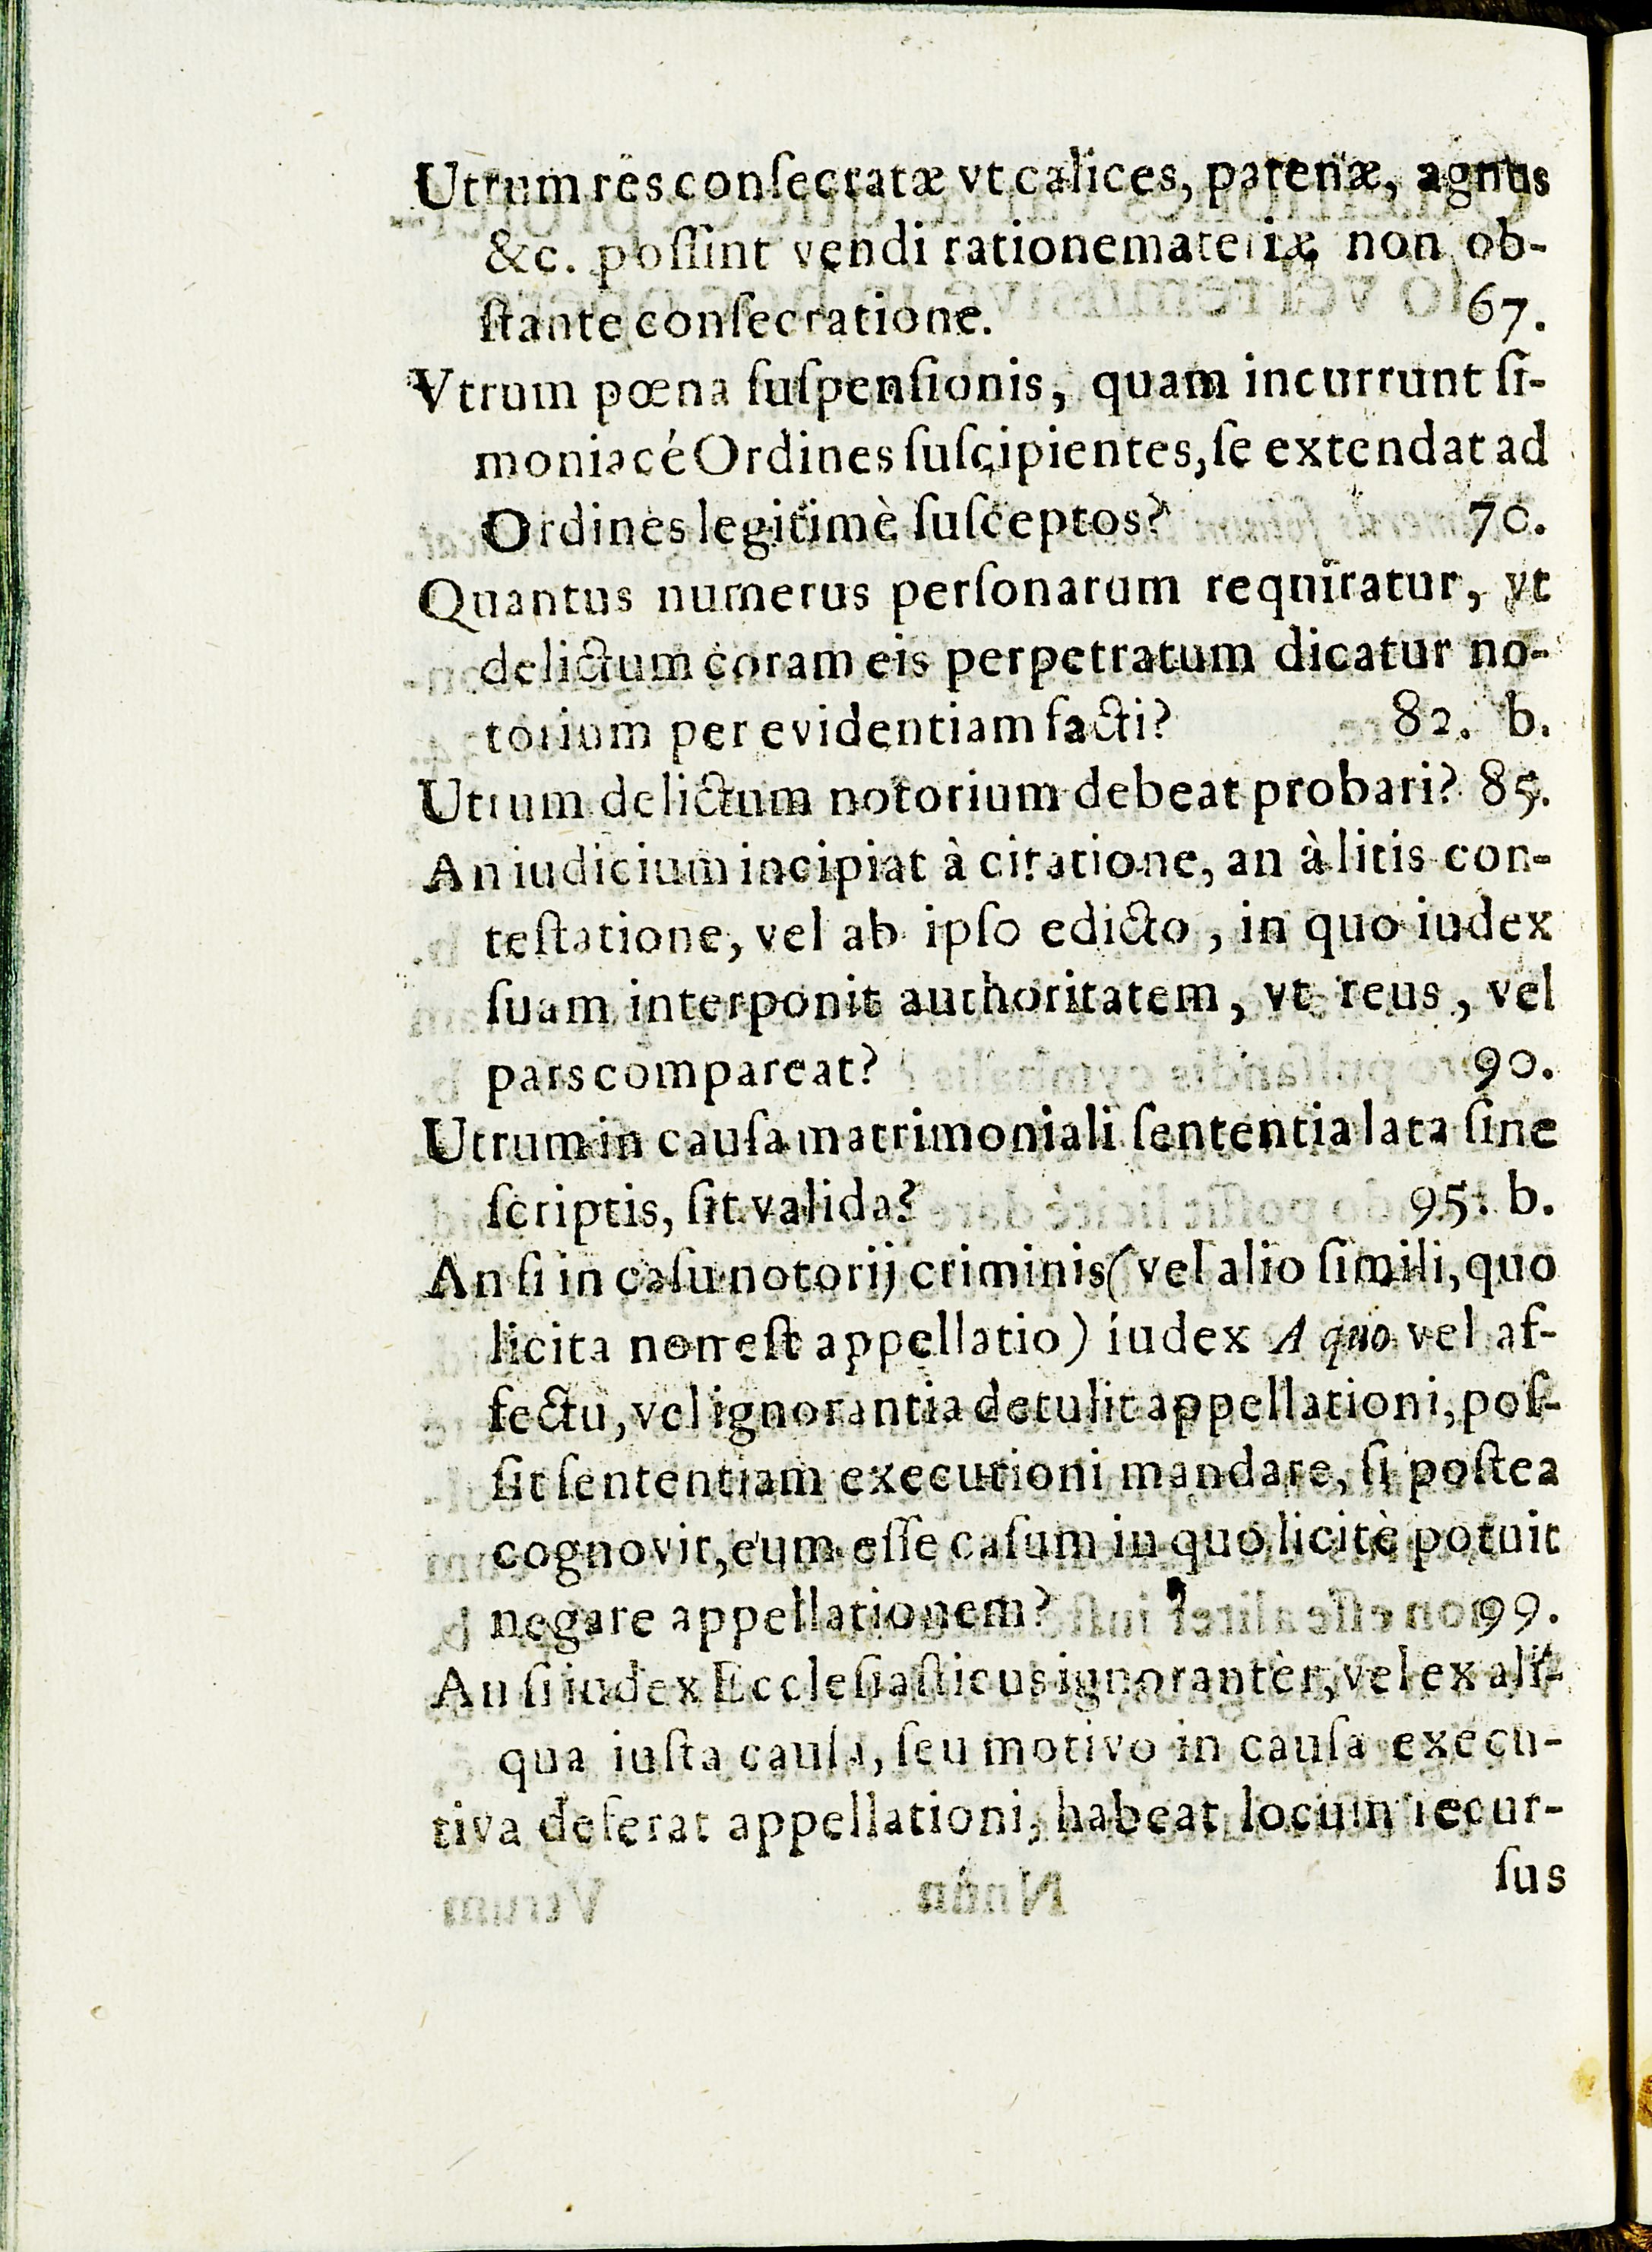 Utrum res conſecratæ vt calices, patenæ, agnus
&c. poſſint vendi ratione materiæ non ob-
ſtante conſecratione. 67.
Vtrum pœna ſuſpenſionis, quam incurrunt ſi-
moniacé Ordines ſuſcipientes, ſe extendat ad
Ordines legitimè ſuſceptos? 70.
Quantus numerus perſonarum requiratur, vt
delictum coram eis perpetratum dicatur no-
torium per evidentiam facti? 82. b.
Utrum delictum notorium debeat probari? 85.
An iudicium incipiat à citatione, an à litis con-
teſtatione, vel ab ipſo edicto, in quo iudex
ſuam interponit authoritatem, vt reus, vel
pars compareat? 90.
Utrum in cauſa matrimoniali ſententia lata ſine
ſcriptis, ſit valida? 95. b.
An ſi in caſu notorij criminis (vel alio ſimili, quo
licita non eſt appellatio) iudex A quo vel af-
fectu, vel ignorantia detulit appellationi, poſ-
ſit ſententiam executioni mandare, ſi poſtea
cognovit, eum eſſe caſum in quo licitè potuit
negare appellationem? 99.
An ſi iudex Eccleſiaſticus ignorantèr, vel ex ali-
qua iuſta cauſa, ſeu motivo in cauſa execu-
tiva deferat appellationi, habeat locum recur-
ſus